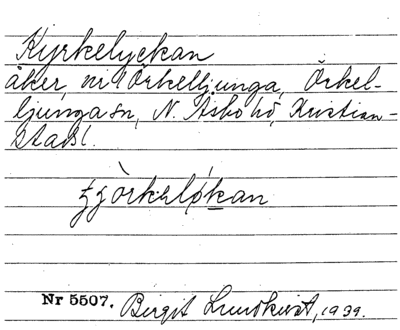 Kyrkelyckan
åker, nr 1 Örkelljunga, Örkel-
ljunga sn, N. Åsbo hd, Kristian-
stads l.
Nr 5507. Birgit Lundkvist, 1939.